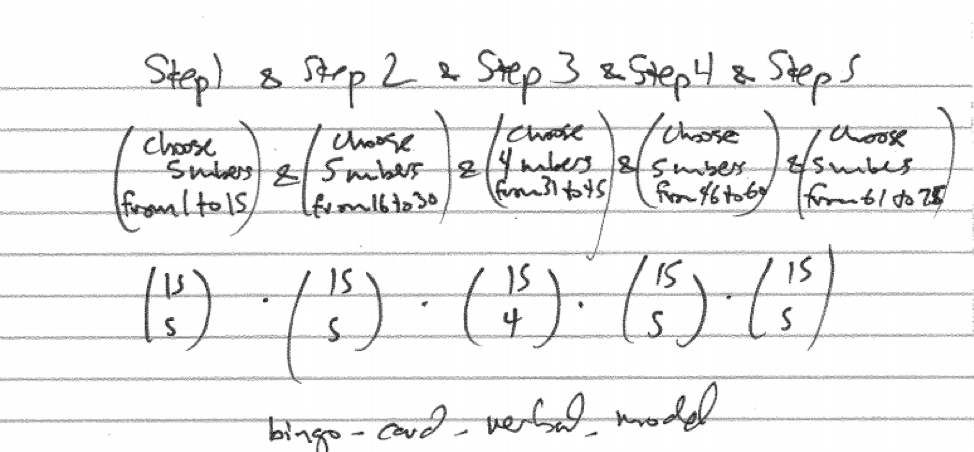 Step 1 & Step 2 & Step 3 & Step 4 & Step 5
(choose 5 numbers from 1 to 15) & (choose 5 numbers from 16 to 30) & (choose 4 numbers from 31 to 45) & (choose 5 numbers from 46 to 60) & (choose 5 numbers from 61 to 75)
(15 5) · (15 5) · (15 4) · (15 5) · (15 5)
bingo-card-verbal-model